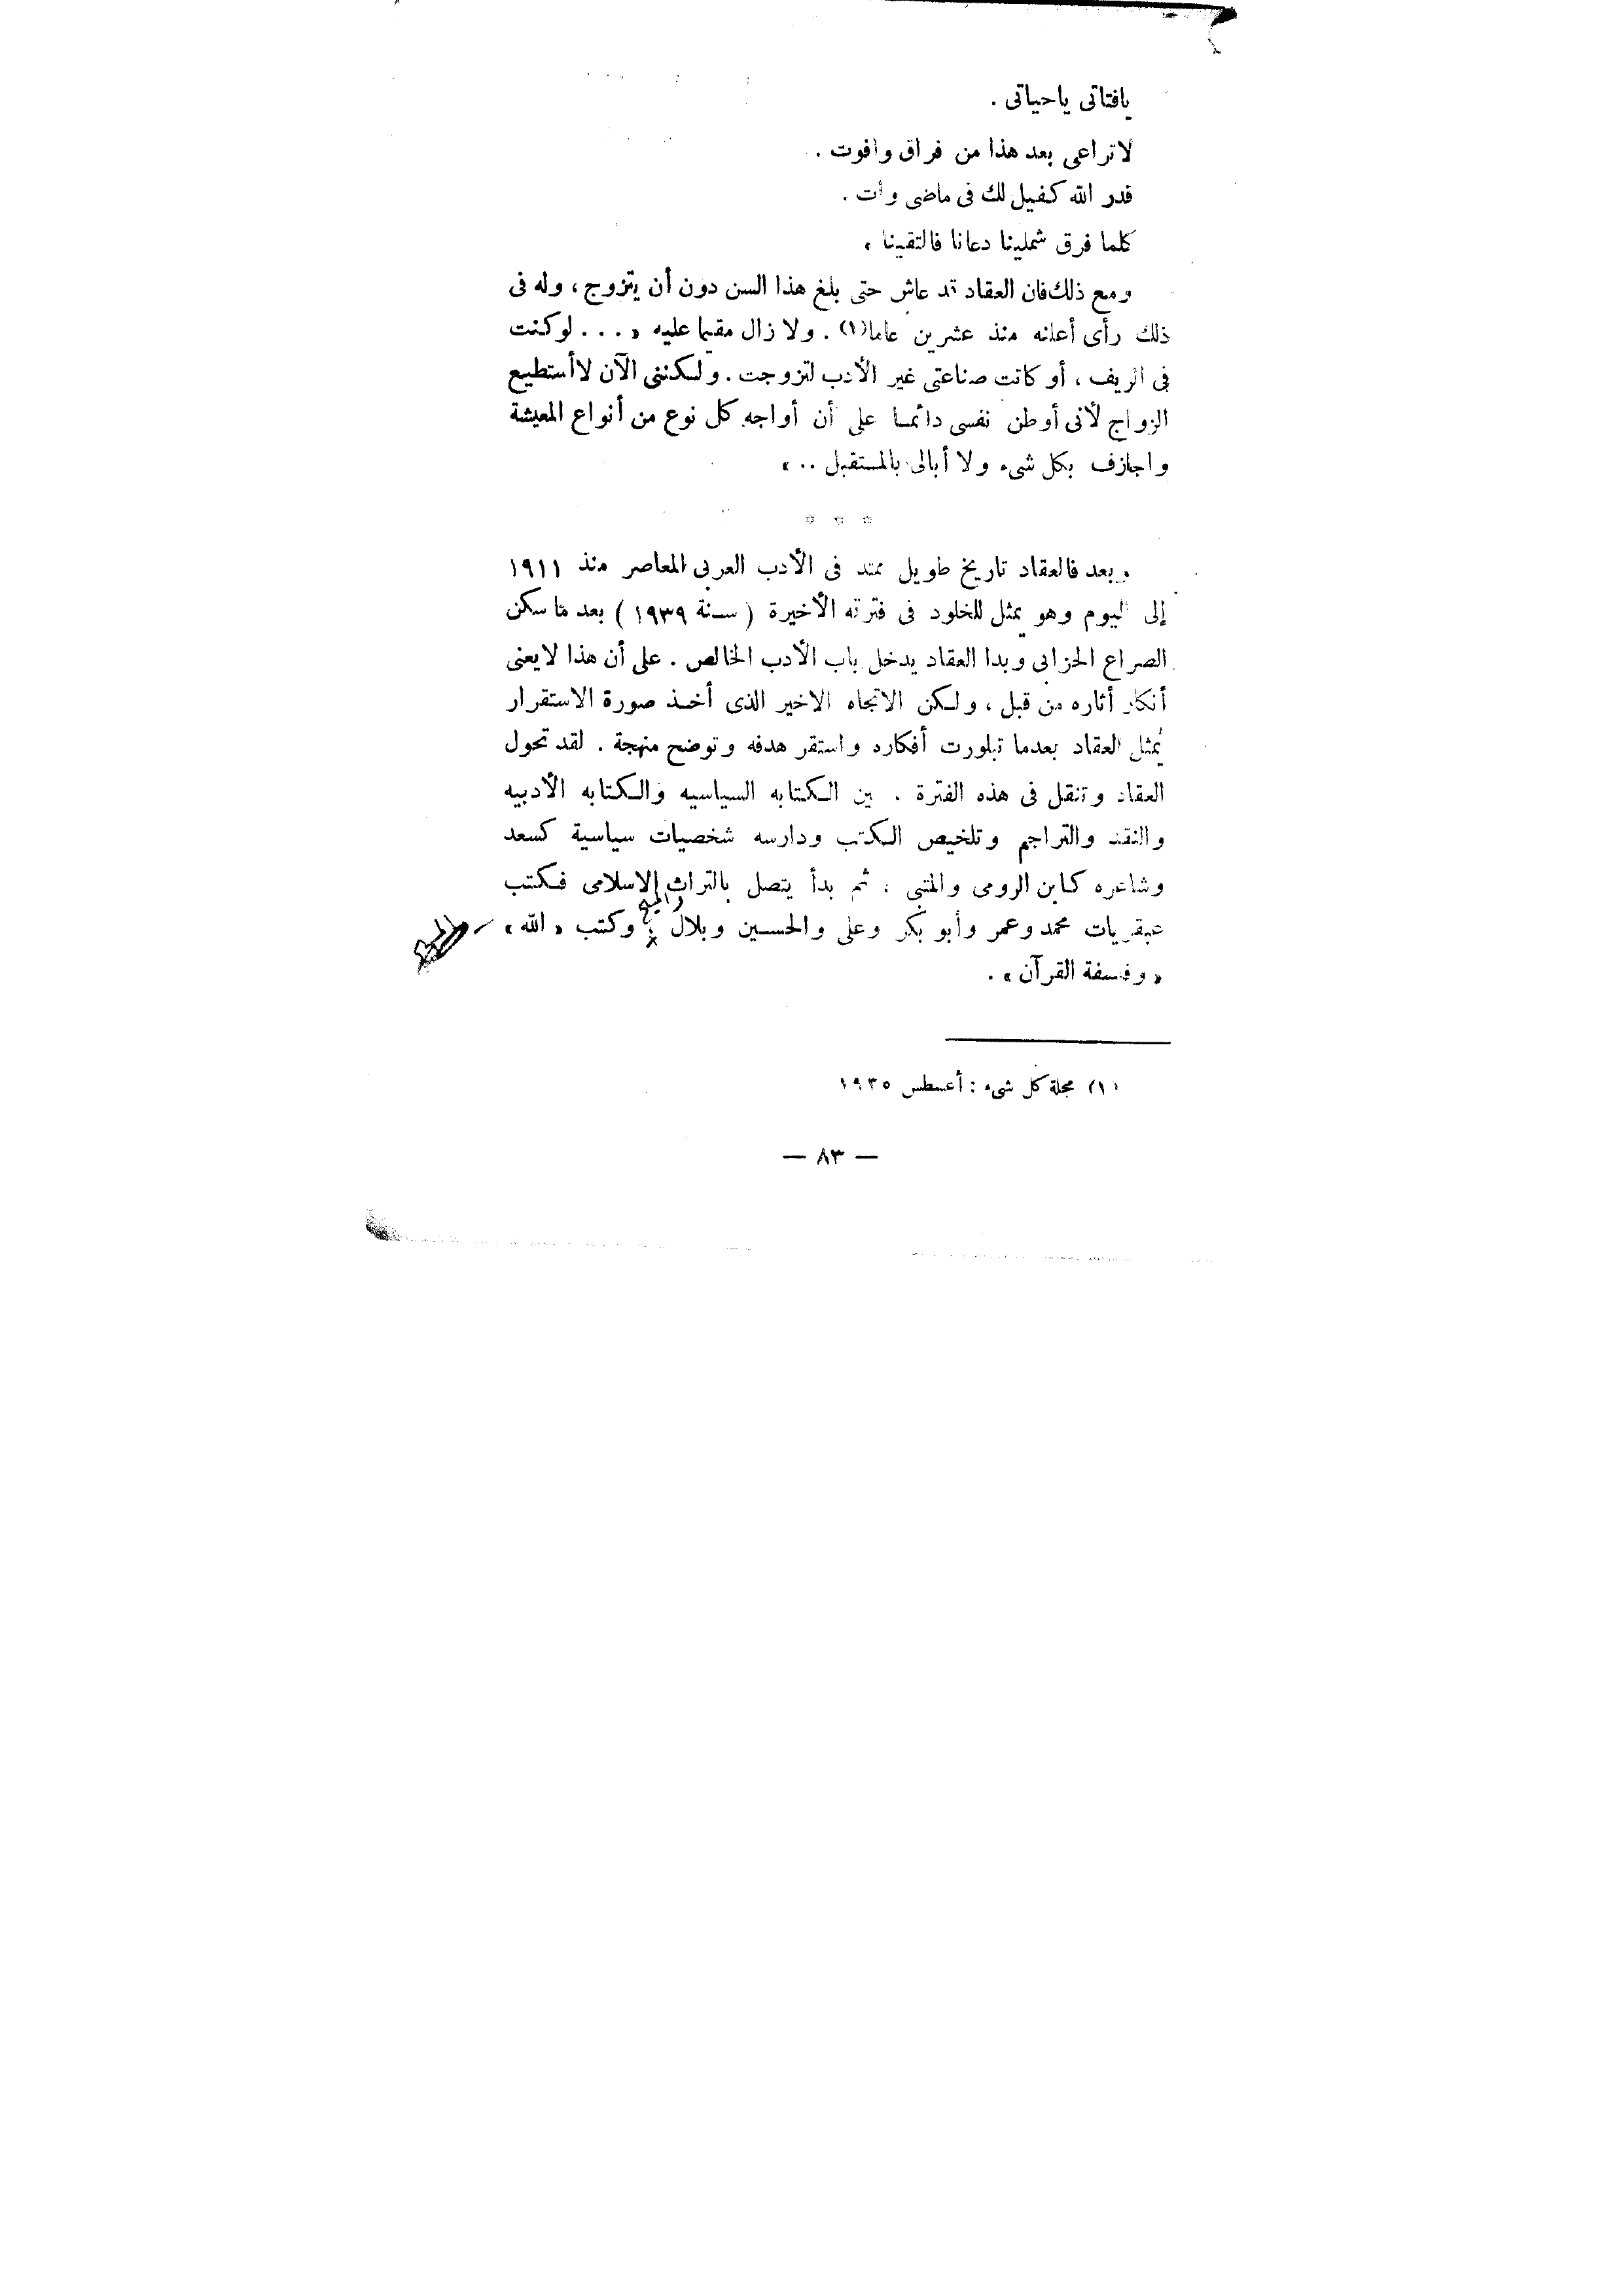 يافتاتى ياحياتى .
لاتراعى بعد هذا من فراق وافوت .
قدر الله كفيل لك فى ماضى وأت .
كلما فرق شملينا دعانا فالتقينا »
ومع ذلك فان العقاد قد عاش حتى بلغ هذا السن دون أن يتزوج ، وله فى
ذلك رأى أعلنه منذ عشرين عاما (١) . ولا زال مقيما عليه « . . . لو كنت
فى الريف ، أو كانت صناعتى غير الأدب لتزوجت . ولكننى الآن لا أستطيع
الزواج لأنى أوطن نفسى دائما على أن أواجه كل نوع من أنواع المعيشة
واجازف بكل شىء ولا أبالى بالمستقبل .. »
* * *
وبعد فالعقاد تاريخ طويل ممتد فى الأدب العربى المعاصر منذ ١٩١١
إلى اليوم وهو يمثل للخلود فى فترته الأخيرة ( سنة ١٩٣٩ ) بعد ما سكن
الصراع الحزابى وبدا العقاد يدخل باب الأدب الخالص . على أن هذا لايعنى
أنكار أثاره من قبل ، ولكن الاتجاه الاخير الذى أخذ صورة الاستقرار
يمثل العقاد بعدما تبلورت أفكاره واستقر هدفه وتوضح منهجة . لقد تحول
العقاد وتنقل فى هذه الفترة . بين الكتابه السياسيه والكتابه الأدبيه
والنقد والتراجم وتلخيص الكتب ودارسه شخصيات سياسية كسعد
وشاعره كابن الرومى والمتنبى ، ثم بدأ يتصل بالتراث الاسلامى فكتب
عبقريات محمد وعمر وأبو بكر وعلى والحسين وبلال وكتب « الله »
« وفلسفة القرآن » .
(١) مجلة كل شىء : أغسطس ١٩٣٥
— ٨٣ —